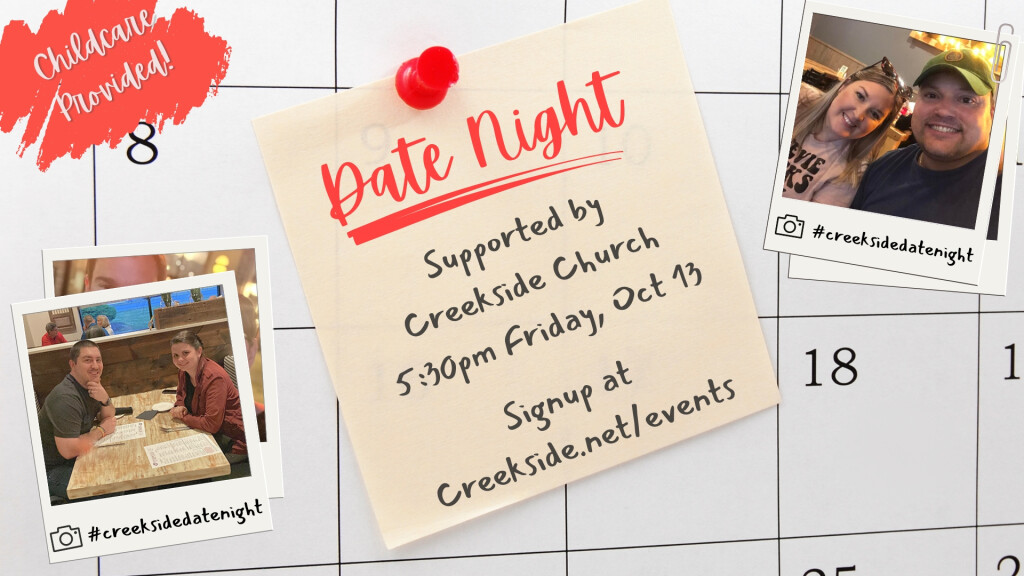 Childcare
Provided!
8
9
10
Date Night
Supported by
Creekside Church
5:30pm Friday, Oct 13
Signup at
Creekside.net/events
#creeksidedatenight
#creeksidedatenight
18
25